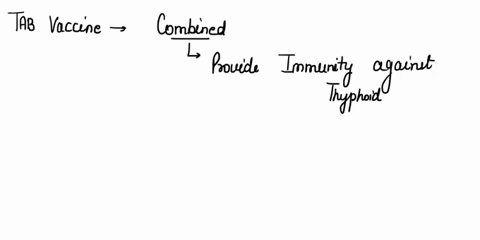 TAB Vaccine → Combined
↳ Provide Immunity against
Thyphoid